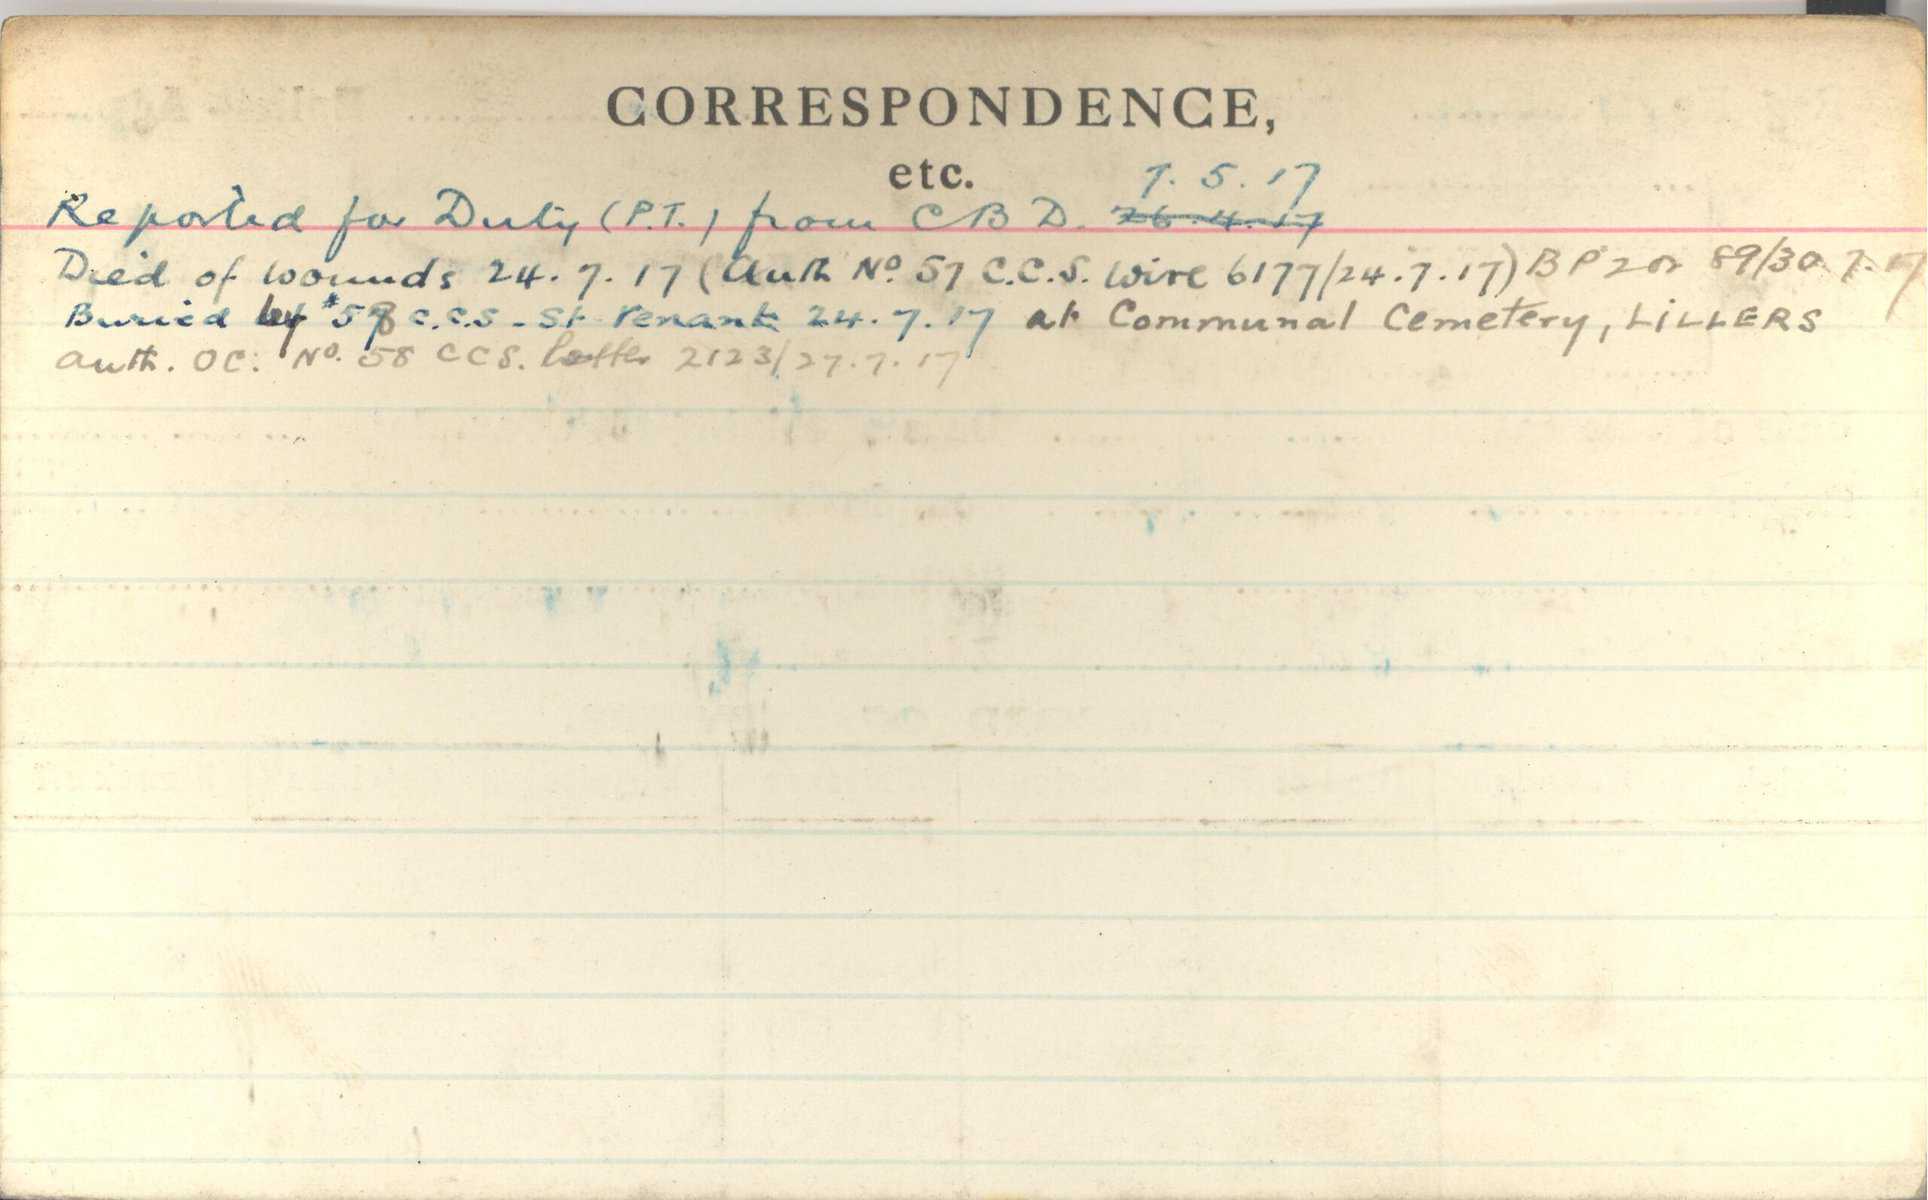 CORRESPONDENCE,
etc.
7. 5. 17
Reported for Duty (P.T.) from C B D. 26.4.17
Died of wounds 24.7.17 (Auth No 57 C.C.S. Wire 6177/24.7.17) B P 2 or 89/30.7.17
Buried by #58 C.C.S - St Venant 24.7.17 at Communal Cemetery, LILLERS
auth. OC. No. 58 CCS. letter 2123/27.7.17